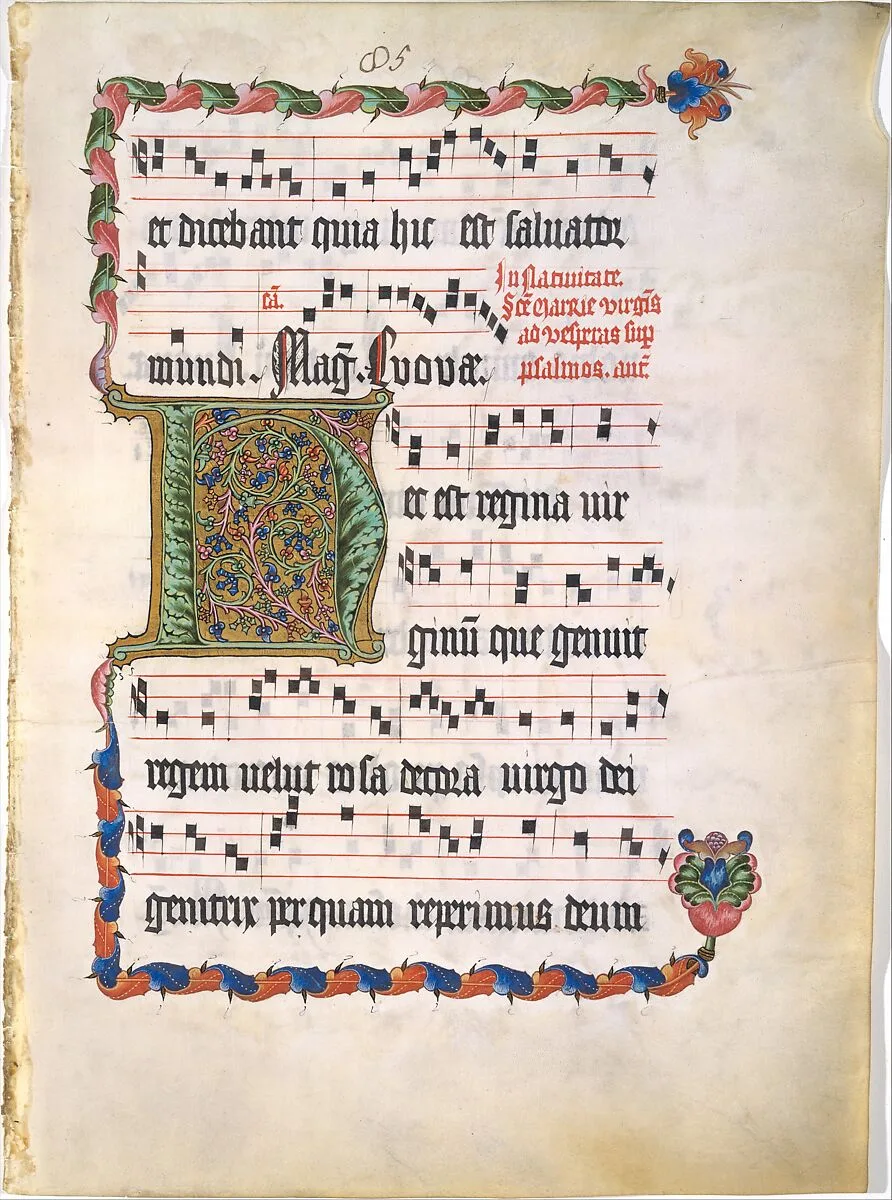 85
et dicebant quia hic est saluator
In Natiuitate.
Scē Marie virgīs
ad vesperas sup
psalmos. ant̄
mundi. Mag̃. Euouae.
Hec est regina uir
ginū que genuit
regem uelut rosa decora uirgo dei
genitrix per quam reperimus deum